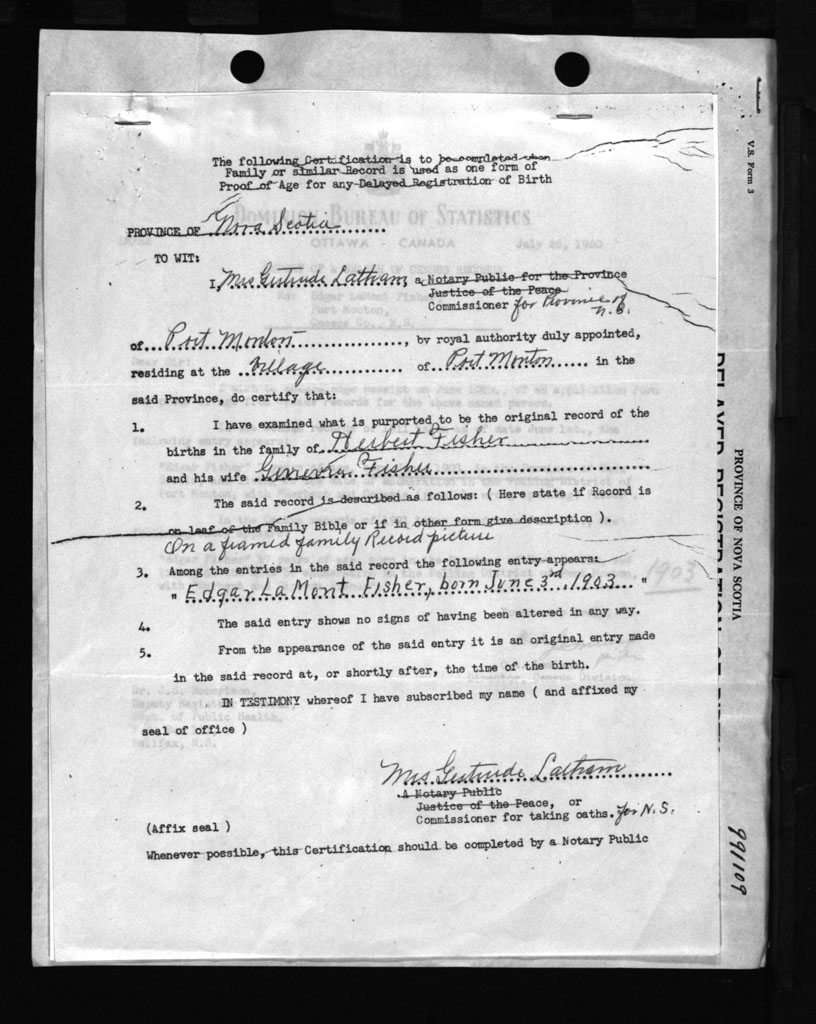 The following Certification is to be completed when
Family or similar Record is used as one form of
Proof of Age for any Delayed Registration of Birth
DOMINION BUREAU OF STATISTICS
PROVINCE OF Nova Scotia
OTTAWA - CANADA July 26, 1960
TO WIT:
I, Mrs Gertrude Latham, a Notary Public for the Province
Justice of the Peace
Commissioner for Province of
N.S.
of Port Monton, by royal authority duly appointed,
residing at the Village of Port Monton in the
said Province, do certify that:
1. I have examined what is purported to be the original record of the
births in the family of Herbert Fisher
and his wife Ginevra Fisher
2. The said record is described as follows: ( Here state if Record is
on leaf of the Family Bible or if in other form give description ).
On a framed family Record picture
3. Among the entries in the said record the following entry appears:
" Edgar LaMont Fisher, born June 3rd 1903 "
1903
4. The said entry shows no signs of having been altered in any way.
5. From the appearance of the said entry it is an original entry made
in the said record at, or shortly after, the time of the birth.
IN TESTIMONY whereof I have subscribed my name ( and affixed my
seal of office )
Mrs Gertrude Latham
A Notary Public
Justice of the Peace, or
Commissioner for taking oaths. for N.S.
(Affix seal )
Whenever possible, this Certification should be completed by a Notary Public
V.S. Form 3
PROVINCE OF NOVA SCOTIA
991109